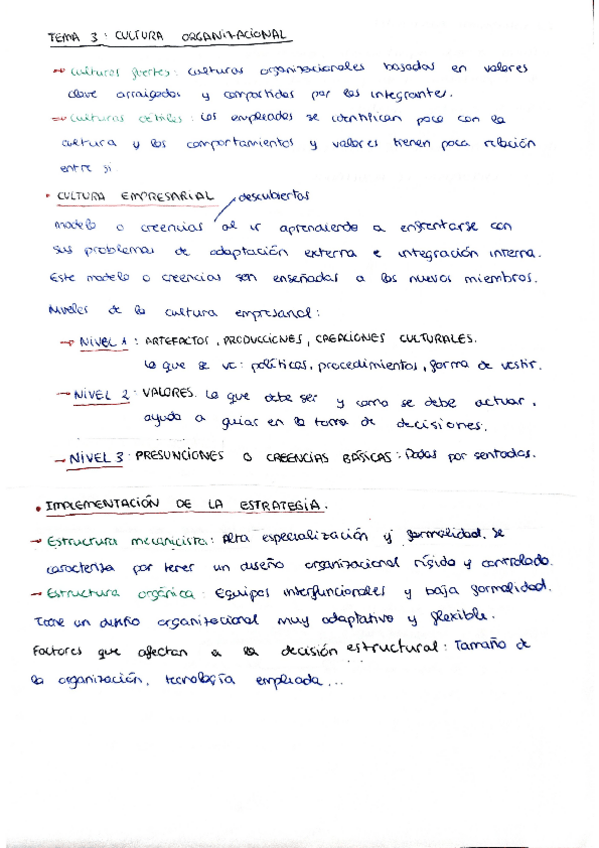 TEMA 3: CULTURA ORGANIZACIONAL
→ Culturas fuertes: culturas organizacionales basadas en valores
clave arraigados y compartidos por los integrantes.
→ Culturas débiles: Los empleados se identifican poco con la
cultura y los comportamientos y valores tienen poca relación
entre sí.
• CULTURA EMPRESARIAL descubiertos
modelo o creencias al ir aprendiendo a enfrentarse con
sus problemas de adaptación externa e integración interna.
Este modelo o creencias son enseñadas a los nuevos miembros.
Niveles de la cultura empresarial:
→ NIVEL 1: ARTEFACTOS, PRODUCCIONES, CREACIONES CULTURALES.
Lo que se ve: políticas, procedimientos, forma de vestir.
→ NIVEL 2: VALORES. Lo que debe ser y como se debe actuar,
ayuda a guiar en la toma de decisiones.
→ NIVEL 3: PRESUNCIONES O CREENCIAS BÁSICAS: Dadas por sentadas.
• IMPLEMENTACIÓN DE LA ESTRATEGIA.
→ Estructura mecanicista: Alta especialización y formalidad. Se
caracteriza por tener un diseño organizacional rígido y controlado.
→ Estructura orgánica: Equipos interfuncionales y baja formalidad.
Tiene un diseño organizacional muy adaptativo y flexible.
Factores que afectan a la decisión estructural: Tamaño de
la organización, tecnología empleada...